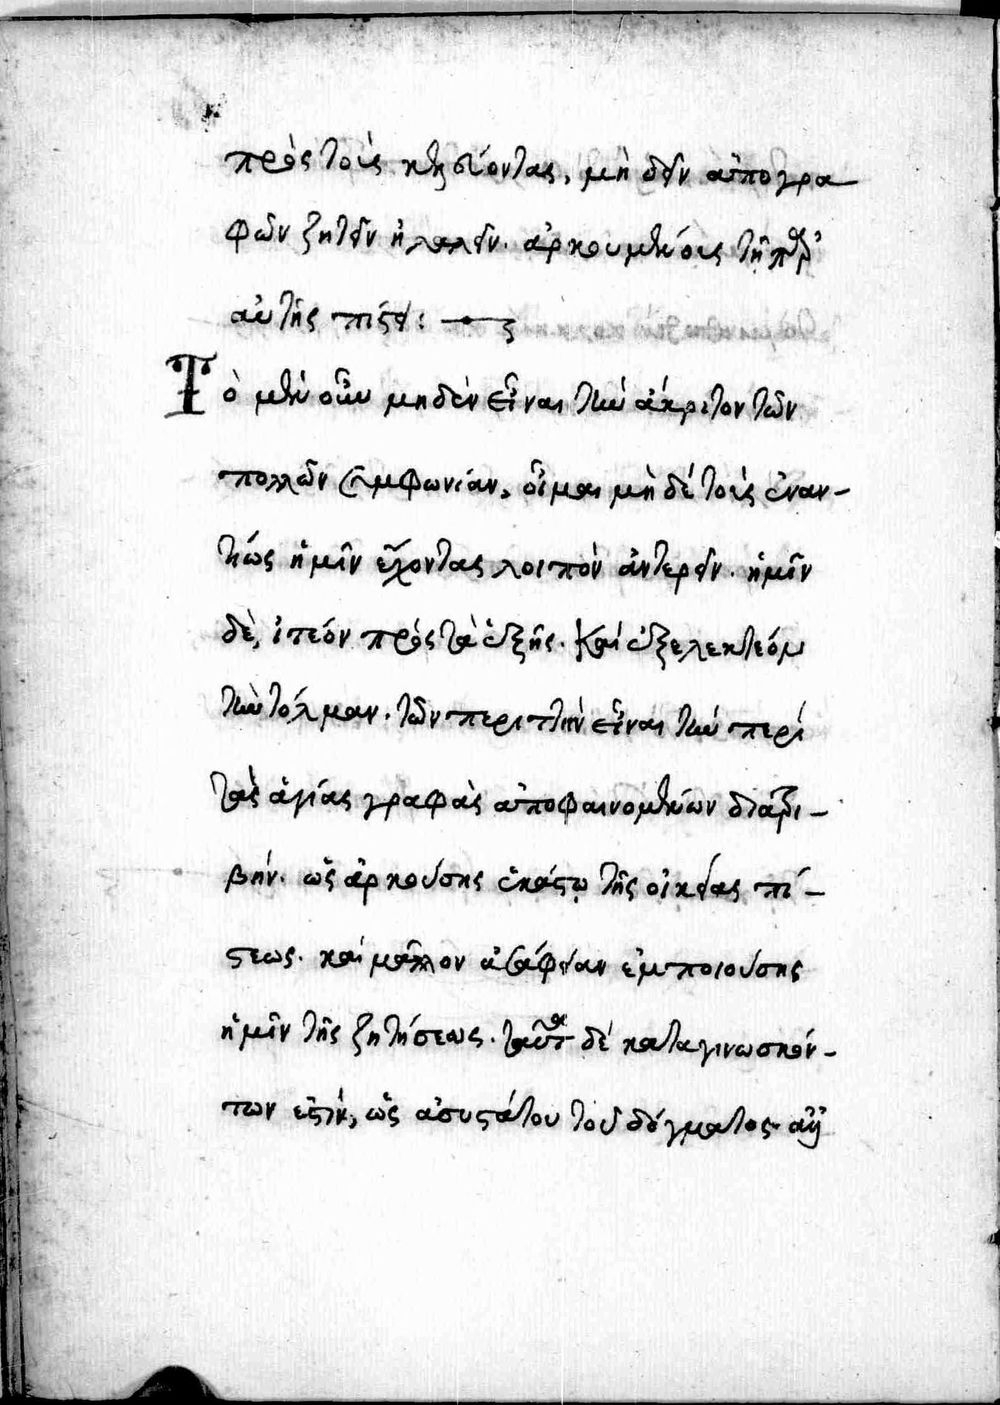 πρὸς τοὺς κτησίοντας, μὴ δεῖν ἀπὸ γρα
φῶν ζητεῖν ἢ λαλεῖν. ἀρκουμένους τῇ παρ'
αὐτῆς πίστει:
Τὸ μὲν οὖν μηδὲν εἶναι τὴν ἄκριτον τῶν
πολλῶν συμφωνίαν, οἶμαι μὴ δὲ τοὺς ἐναν-
τίως ἡμῖν ἔχοντας λοιπὸν ἀντερεῖν. ἡμῖν
δὲ, ἰτέον πρὸς τὰ ἑξῆς. καὶ ἐξελεκτέον
τὴν τόλμαν. τῶν περιττὴν εἶναι τὴν περὶ
τὰς ἁγίας γραφὰς ἀποφαινομένων διατρι-
βήν. ὡς ἀρκούσης ἑκάστῳ τῆς οἰκείας πί-
στεως. καὶ μᾶλλον ἀσάφειαν ἐμποιούσης
ἡμῖν τῆς ζητήσεως. ταῦτα δὲ καταγινωσκόν-
των ἐστὶν, ὡς ἀσυστάτου τοῦ δόγματος.